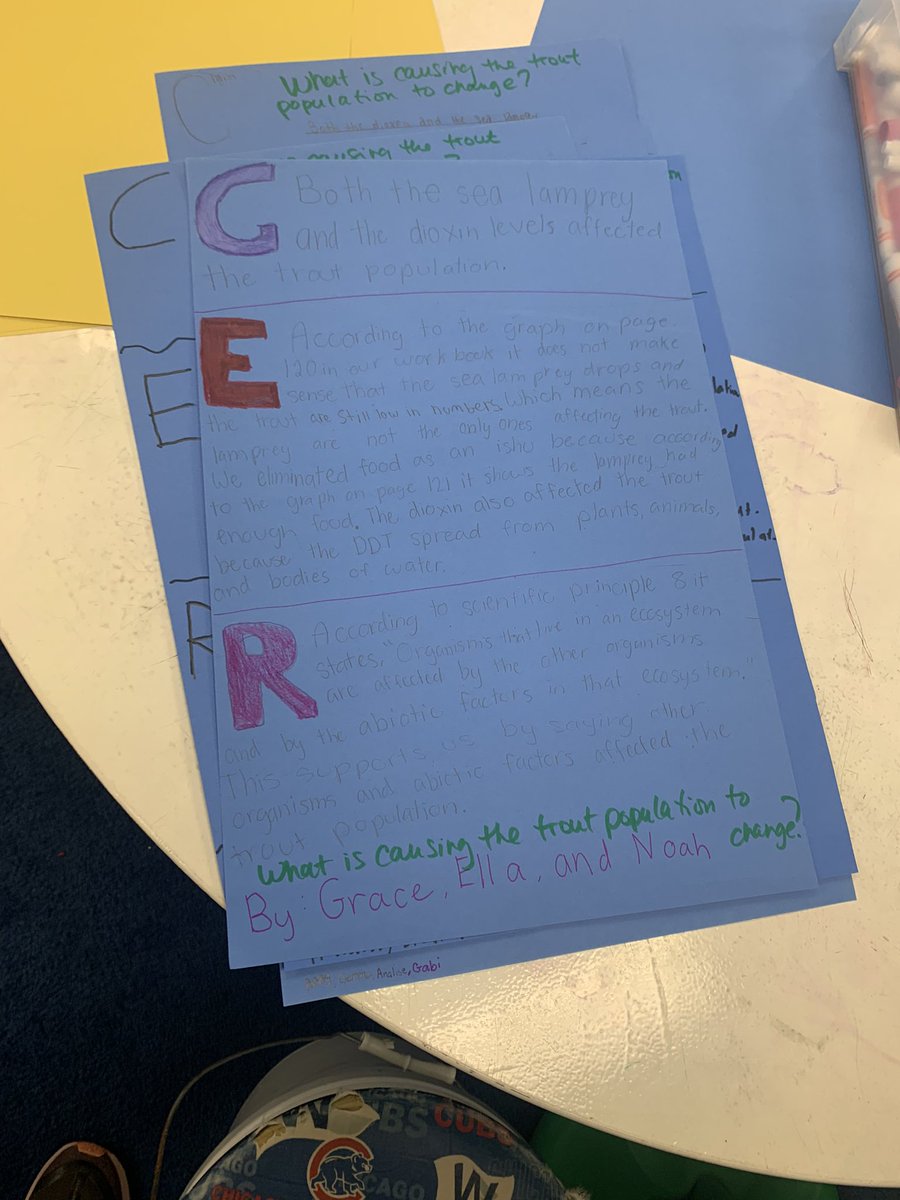 C laim
What is causing the trout
population to change?
Both the dioxin and the sea lamprey
causing the trout
C
C Both the sea lamprey
and the dioxin levels affected
the trout population.
E
E According to the graph on page
120 in our work book it does not make
sense that the sea lam prey drops and
the trout are still low in numbers. Which means the
lamprey are not the only ones affecting the trout.
We eliminated food as an ishu because according
to the graph on page 121 it shows the lamprey had
enough food. The dioxin also affected the trout
because the DDT spread from plants, animals,
and bodies of water.
R
R According to scientific principle 8 it
states, "Organisms that live in an ecosystem
are affected by the other organisms
and by the abiotic factors in that ecosystem."
This supports us by saying other
organisms and abiotic factors affected the
trout population.
What is causing the trout population to
change?
By: Grace, Ella, and Noah
Analise, Gabi
CUBS
CHICAGO
W